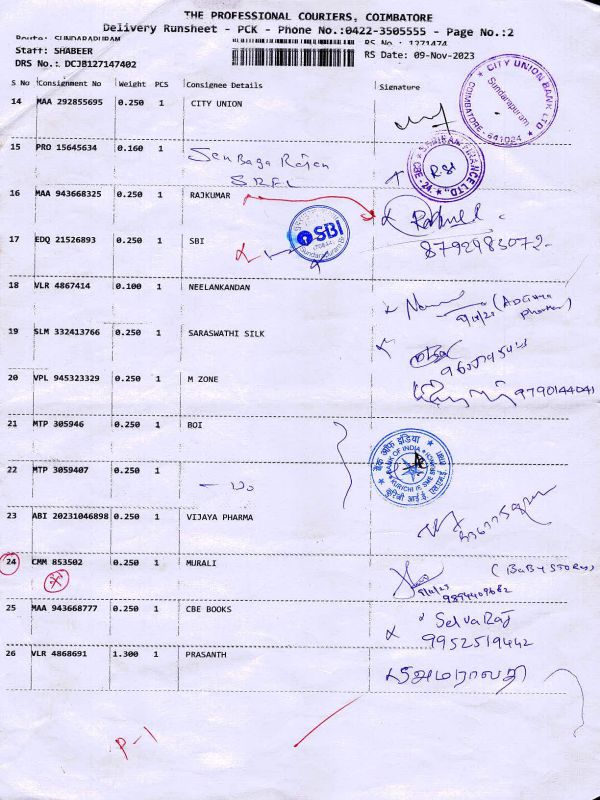 THE PROFESSIONAL COURIERS, COIMBATORE
Delivery Runsheet - PCK - Phone No.:0422-3505555 - Page No.:2
Route: SUNDARAPURAM RS No.: 1271474
Staff: SHABEER RS Date: 09-Nov-2023
DRS No.: DCJB127147402
S No Consignment No Weight PCS Consignee Details Signature
14 MAA 292855695 0.250 1 CITY UNION
CITY UNION BANK LTD
Sundarapuram
COIMBATORE - 641024
15 PRO 15645634 0.160 1
16 MAA 943668325 0.250 1 RAJKUMAR
8792983072
17 EDQ 21526893 0.250 1 SBI
SBI
18 VLR 4867414 0.100 1 NEELANKANDAN
19 SLM 332413766 0.250 1 SARASWATHI SILK
20 VPL 945323329 0.250 1 M ZONE
9790144041
21 MTP 305946 0.250 1 BOI
बैंक ऑफ इंडिया
BANK OF INDIA
22 MTP 3059407 0.250 1
23 ABI 20231046898 0.250 1 VIJAYA PHARMA
24 CMM 853502 0.250 1 MURALI
(BABY STORES)
25 MAA 943668777 0.250 1 CBE BOOKS
Selvaraj
9952519442
26 VLR 4868691 1.300 1 PRASANTH
அமராவதி
P-1